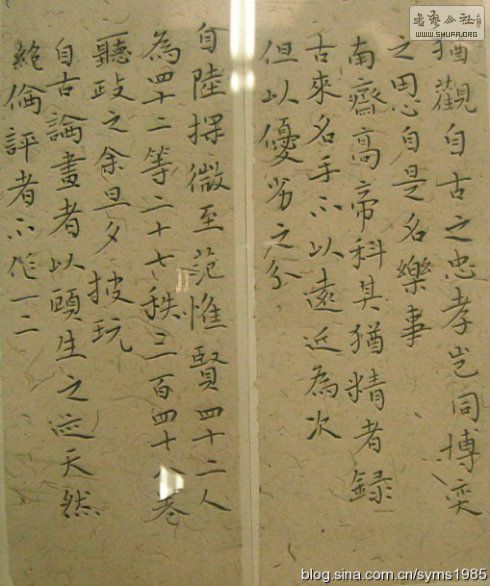 猶觀自古之忠孝豈同博奕
之用心自是名樂事
南齋高帝科其猶精者録
古來名手不以遠近為次
但以優劣之分
自陸探微至范惟賢四十二人
為四十二等二十七秩三百四十卷
聽政之余旦夕披玩
自古論畫者以頋生之迹天然
絶倫評者不作一二
书艺公社
WWW.SHUFA.ORG
blog.sina.com.cn/syms1985